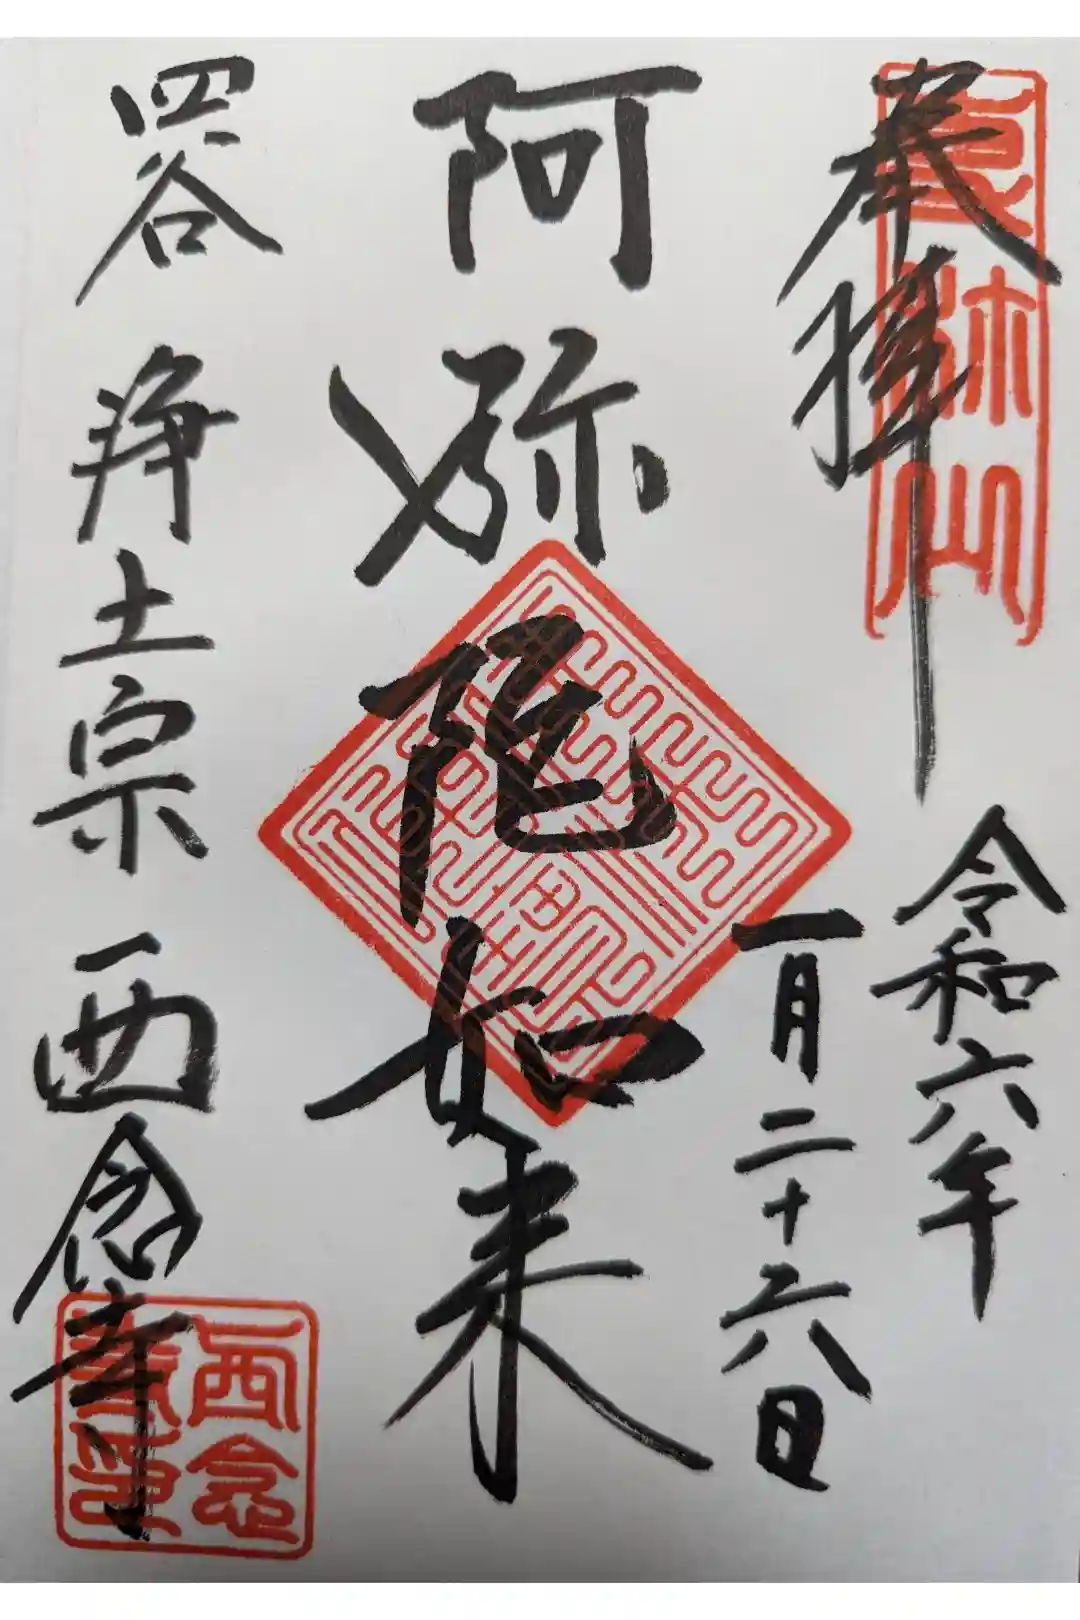 奉拝
令和六年
一月二十六日
阿弥陀如来
四谷 浄土宗 西念寺
西念
寺印